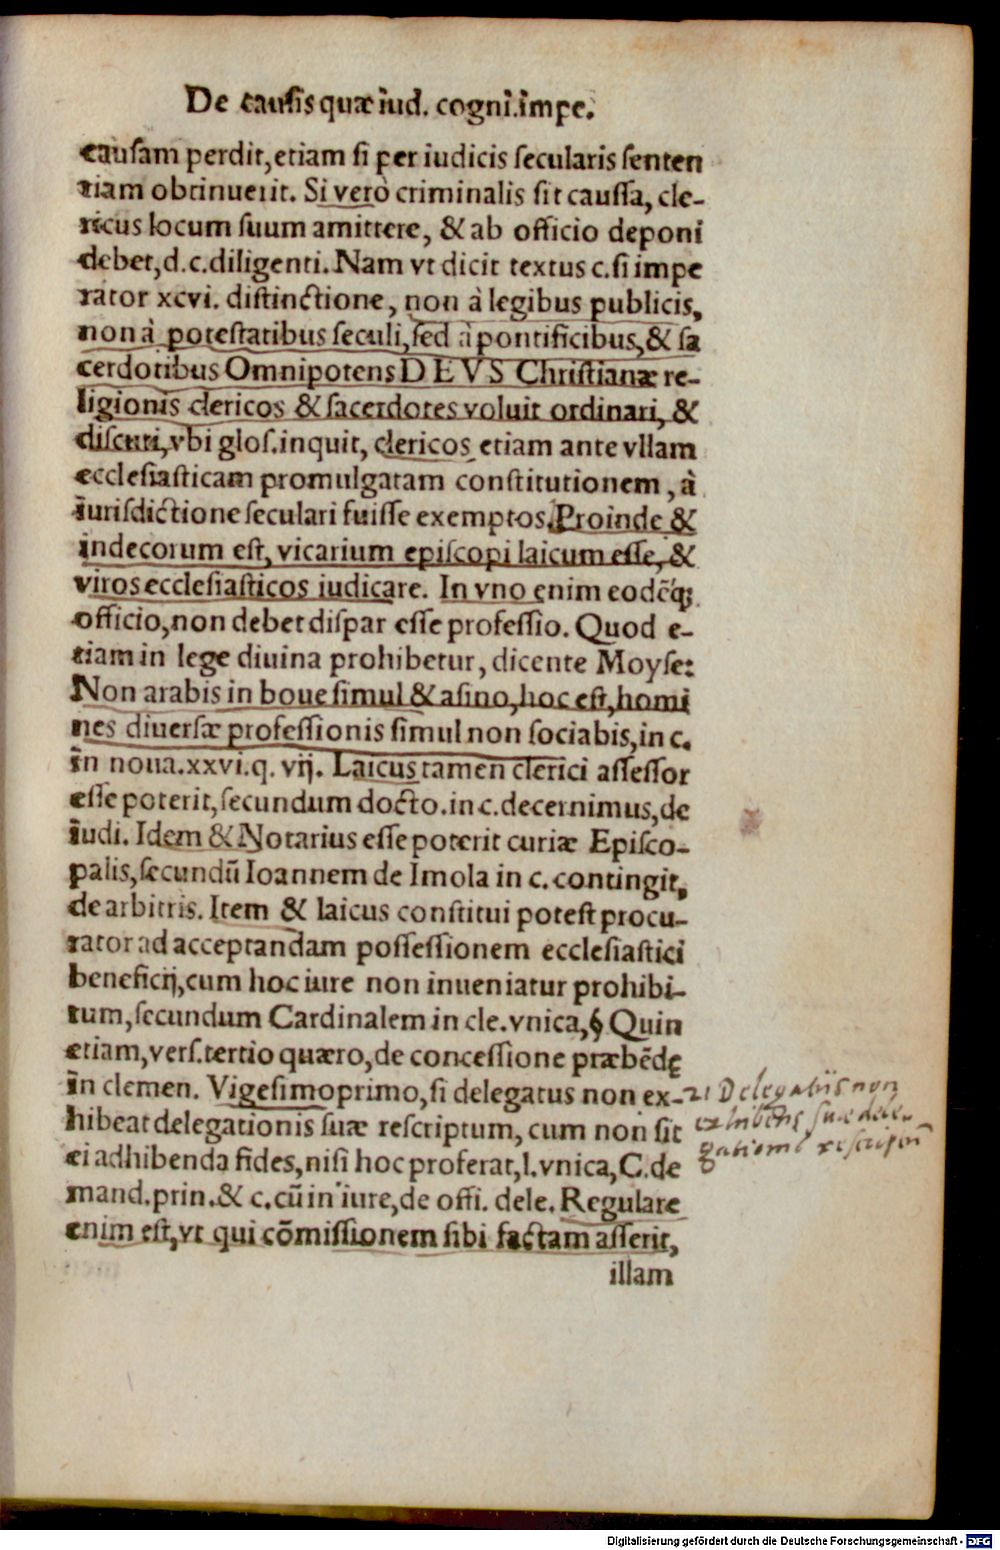 De causis quæ iud. cogni. impe.
causam perdit, etiam si per iudicis secularis senten
tiam obtinuerit. Si verò criminalis sit caussa, cle-
ricus locum suum amittere, & ab officio deponi
debet, d. c. diligenti. Nam vt dicit textus c. si impe
rator xcvi. distinctione, non à legibus publicis,
non à potestatibus seculi, sed à pontificibus, & sa
cerdotibus Omnipotens DEVS Christianæ re-
ligionis clericos & sacerdotes voluit ordinari, &
discuti, vbi glos. inquit, clericos etiam ante vllam
ecclesiasticam promulgatam constitutionem, à
iurisdictione seculari fuisse exemptos. Proinde &
indecorum est, vicarium episcopi laicum esse, &
viros ecclesiasticos iudicare. In vno enim eodēq;
officio, non debet dispar esse professio. Quod e-
tiam in lege diuina prohibetur, dicente Moyse:
Non arabis in boue simul & asino, hoc est, homi
nes diuersæ professionis simul non sociabis, in c.
in noua. xxvi. q. vij. Laicus tamen clerici assessor
esse poterit, secundum docto. in c. decernimus, de
iudi. Idem & Notarius esse poterit curiæ Episco-
palis, secundū Ioannem de Imola in c. contingit,
de arbitris. Item & laicus constitui potest procu-
rator ad acceptandam possessionem ecclesiastici
beneficij, cum hoc iure non inueniatur prohibi-
tum, secundum Cardinalem in cle. vnica, § Quin
etiam, vers. tertio quæro, de concessione præbēdę
in clemen. Vigesimoprimo, si delegatus non ex-
hibeat delegationis suæ rescriptum, cum non sit
ei adhibenda fides, nisi hoc proferat, l. vnica, C. de
mand. prin. & c. cū in iure, de offi. dele. Regulare
enim est, vt qui cōmissionem sibi factam asserit,
illam
21 Delegatus non
exhibens suæ dele-
gationis rescriptū
Digitalisierung gefördert durch die Deutsche Forschungsgemeinschaft - DFG